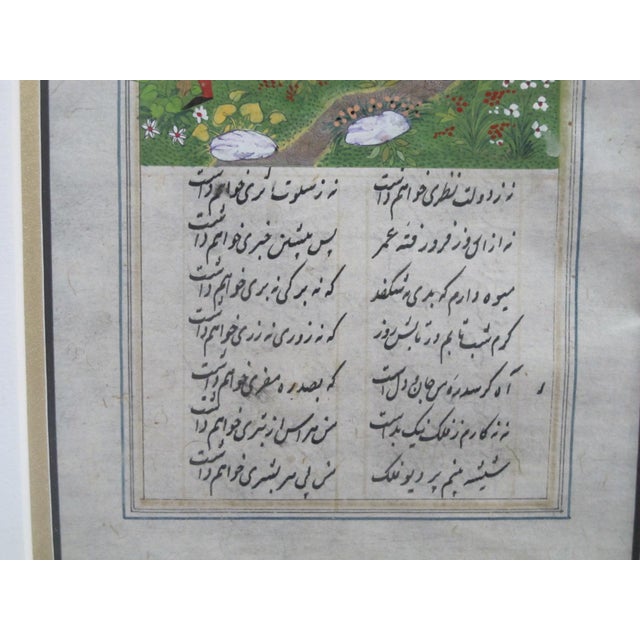 نه ز دولت نظری خواهم داشت نه ز سلوت اثری خواهم داشت
نه از ای روز فرو رفته عمر پس پیشین خبری خواهم داشت
میوه دارم که بدی مه شکفد که نه برگی نه بری خواهم داشت
کرم شب تابم در تابش روز که نه زوری نه زری خواهم داشت
آه گر سدره من جان و دل است که بصدره سفری خواهم داشت
نه نه کارم ز فلک نیک بد است من هراس از بتری خواهم داشت
شیشه بینم پر دیو فلک من پی هر بشری خواهم داشت